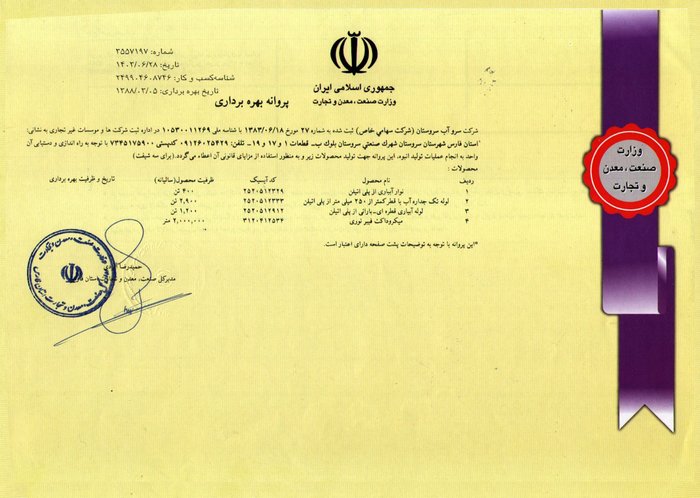 جمهوری اسلامی ایران
وزارت صنعت، معدن و تجارت
پروانه بهره برداری
شماره: ۳۵۵۷۱۹۷
تاریخ: ۱۴۰۳/۰۶/۲۸
شناسه‌کسب و کار: ۲۴۹۹۰۴۶۰۸۷۴۶
تاریخ بهره برداری: ۱۳۸۸/۰۳/۰۵
شرکت سرو آب سروستان (شرکت سهامی خاص) ثبت شده به شماره ۲۷ مورخ ۱۳۸۳/۰۶/۱۸ با شناسه ملی ۱۰۵۳۰۰۱۱۲۶۹ در اداره ثبت شرکت ها و موسسات غیر تجاری به نشانی:
استان فارس شهرستان سروستان شهرک صنعتی سروستان بلوک ب- قطعات ۱ و ۱۷ و ۱۹-- تلفن: ۰۹۱۲۶۰۲۵۴۲۹ کدپستی ۷۳۴۵۱۷۵۹۰۰ با توجه به راه اندازی و دستیابی آن
واحد به انجام عملیات تولید انبوه، این پروانه جهت تولید محصولات زیر و به منظور استفاده از مزایای قانونی آن اعطاء می‌گردد.(برای سه شیفت)
محصولات :
ردیف نام محصول کد آیسیک ظرفیت محصول(سالیانه) تاریخ و ظرفیت بهره برداری
۱ نوار آبیاری از پلی اتیلن ۲۵۲۰۵۱۲۳۲۹ ۴۰۰ تن
۲ لوله تک جداره آب با قطر کمتر از ۲۵۰ میلی متر از پلی اتیلن ۲۵۲۰۵۱۲۳۳۳ ۲,۹۰۰ تن
۳ لوله آبیاری قطره ای-بارانی از پلی اتیلن ۲۵۲۰۵۱۲۹۱۲ ۱,۲۰۰ تن
۴ میکروداکت فیبر نوری ۳۱۲۰۴۱۲۵۳۴ ۲,۰۰۰,۰۰۰ متر
*این پروانه با توجه به توضیحات پشت صفحه دارای اعتبار است.
حمیدرضا
مدیرکل صنعت، معدن و استان فارس
وزارت
صنعت، معدن
و تجارت